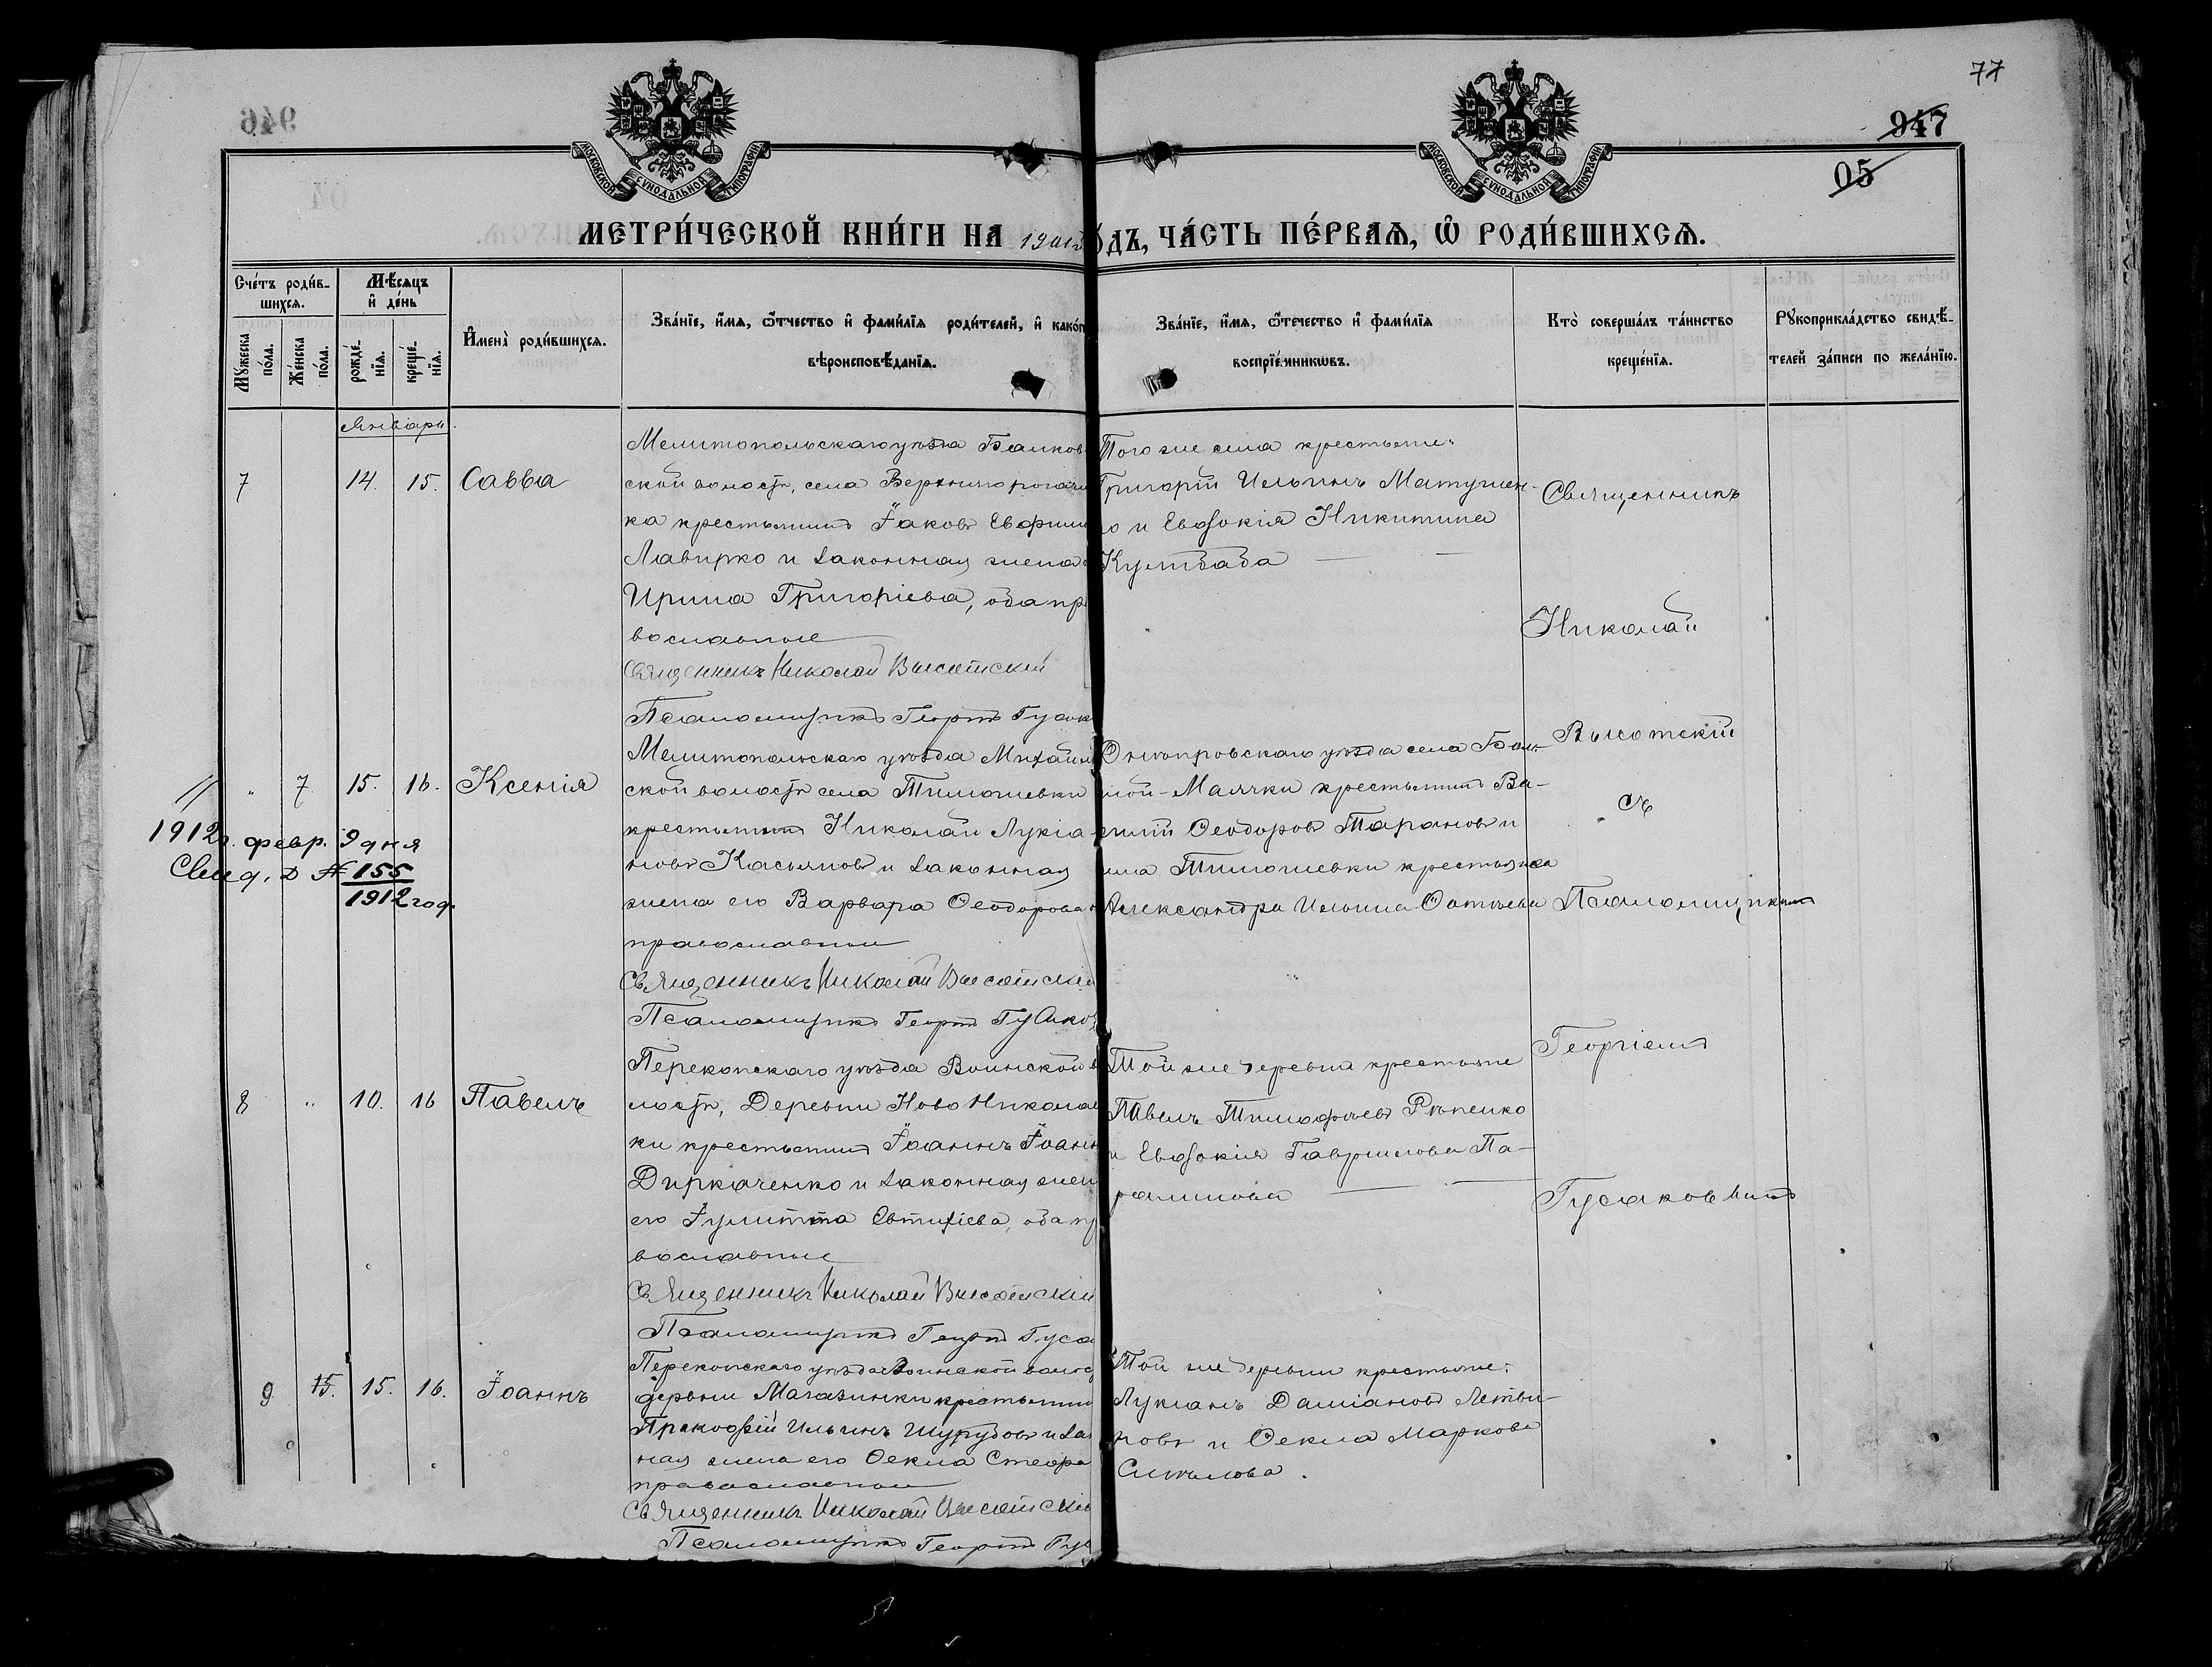 77
946
947
05
МОСКОВСКОЙ СѴНОДАЛЬНОЙ ТИПОГРАФІИ
МОСКОВСКОЙ СѴНОДАЛЬНОЙ ТИПОГРАФІИ
МЕТРИ́ЧЕСКОЙ КНИ́ГИ НА 1912 ѻ́дъ, ЧА́СТЬ ПЕ́РВАѦ, Ѡ҆ РОДИ́ВШИХСѦ.
Сче́тъ роди́в-
шихсѧ.
Мꙋ́жеска по́ла.
Же́нска по́ла.
Мѣ́сѧцъ
и҆ де́нь
рожде́-
нїѧ.
креще́-
нїѧ.
И҆мена̀ роди́вшихсѧ.
Зва́нїе, и҆́мѧ, ѻ҆́тчество и҆ фами́лїѧ роди́телей, и҆ како́г
вѣроисповѣ́данїѧ.
Зва́нїе, и҆́мѧ, ѻ҆́течество и҆ фами́лїѧ
воспрїе́мникѡвъ.
Кто̀ соверша́лъ та́инство
креще́нїѧ.
Рꙋкоприкла́дство свидѣ́-
телей за́писи по жела́нїю.
Январь.
7 14. 15. Савва
Мелитопольскаго уѣзда Балков
ской волости, села Верхняго рогачи
ка крестьянинъ Іаковъ Евфими
Лавирко и законная жена
Ирина Григоріева, оба пр
вославные
Священникъ Николай Высотскій
Псаломщикъ Георгій Гусак
Того же села крестьяне:
Григорій Ильинъ Матушен-
о и Евдокія Никитина
Кулибаба
Священникъ
Николай
Высотскій
съ
Псаломщикомъ
Георгіемъ
Гусаковымъ
" 7 15. 16. Ксенія
1912г. февр. 9 дня
Свид. № 155
1912 год.
Мелитопольскаго уѣзда Михайл
ской волости села Тимошевки
крестьянинъ Николай Лукіа
новъ Касьяновъ и законная
жена его Варвара Ѳеодорова
православные
Священникъ Николай Высотскі
Псаломщикъ Георгій Гусаков
Днѣпровскаго уѣзда села Боль
шой-Маячки крестьянинъ Ва-
силій Ѳеодоровъ Тарановъ и
села Тимошевки крестьянка
Александра Ильина
8 " 10. 16 Павелъ
Перекопскаго уѣзда Воинской в
лости, Деревни Ново Николае
ки крестьянинъ Іоаннъ Іоанн
Диркаченко и законная жен
его Іулитта Евтихіева, оба пр
вославные
Священникъ Николай Высотскій
Псаломщикъ Георгій Гуса
Той же деревни крестьяне
Павелъ Тимофѣевъ Рѣпенко
и Евдокія Гаврилова Па-
9 15. 15. 16. Іоаннъ
Перекопскаго уѣзда Воинской волос
деревни Магазинки крестьянинъ
Прокофій Ильинъ и за
ная жена его Ѳекла
православные
Священникъ Николай Высотскі
Псаломщикъ Георгій Гус
Той же деревни крестьяне:
Лукіанъ Даміановъ Летви-
новъ и Ѳекла Маркова